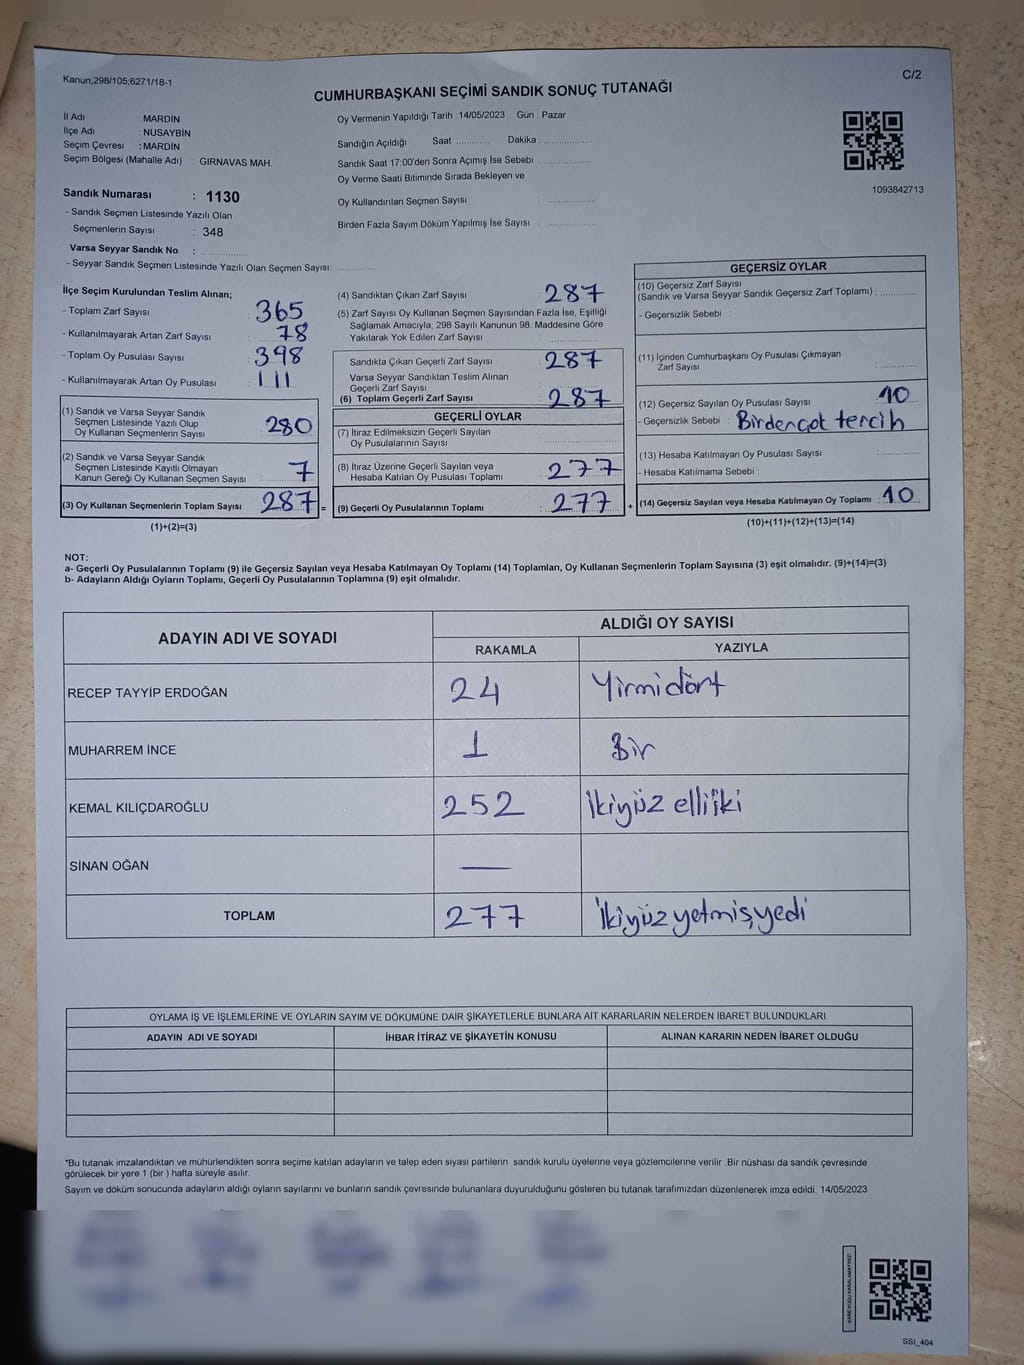 Kanun;298/105;6271/18-1
C/2
CUMHURBAŞKANI SEÇİMİ SANDIK SONUÇ TUTANAĞI
İl Adı : MARDİN
İlçe Adı : NUSAYBİN
Seçim Çevresi : MARDİN
Seçim Bölgesi (Mahalle Adı) : GIRNAVAS MAH.
Sandık Numarası : 1130
- Sandık Seçmen Listesinde Yazılı Olan
Seçmenlerin Sayısı : 348
Varsa Seyyar Sandık No :
- Seyyar Sandık Seçmen Listesinde Yazılı Olan Seçmen Sayısı:
Oy Vermenin Yapıldığı Tarih : 14/05/2023 Gün : Pazar
Sandığın Açıldığı Saat : Dakika :
Sandık Saat 17:00'den Sonra Açımış İse Sebebi :
Oy Verme Saati Bitiminde Sırada Bekleyen ve
Oy Kullandırılan Seçmen Sayısı :
Birden Fazla Sayım Döküm Yapılmış İse Sayısı :
1093842713
İlçe Seçim Kurulundan Teslim Alınan;
- Toplam Zarf Sayısı : 365
- Kullanılmayarak Artan Zarf Sayısı : 78
- Toplam Oy Pusulası Sayısı : 398
- Kullanılmayarak Artan Oy Pusulası : 111
(1) Sandık ve Varsa Seyyar Sandık
Seçmen Listesinde Yazılı Olup
Oy Kullanan Seçmenlerin Sayısı : 280
(2) Sandık ve Varsa Seyyar Sandık
Seçmen Listesinde Kayıtlı Olmayan
Kanun Gereği Oy Kullanan Seçmen Sayısı : 7
(3) Oy Kullanan Seçmenlerin Toplam Sayısı : 287 =
(1)+(2)=(3)
(4) Sandıktan Çıkan Zarf Sayısı : 287
(5) Zarf Sayısı Oy Kullanan Seçmen Sayısından Fazla İse, Eşitliği
Sağlamak Amacıyla, 298 Sayılı Kanunun 98. Maddesine Göre
Yakılarak Yok Edilen Zarf Sayısı :
Sandıkta Çıkan Geçerli Zarf Sayısı : 287
Varsa Seyyar Sandıktan Teslim Alınan
Geçerli Zarf Sayısı :
(6) Toplam Geçerli Zarf Sayısı : 287
GEÇERLİ OYLAR
(7) İtiraz Edilmeksizin Geçerli Sayılan
Oy Pusulalarının Sayısı :
(8) İtiraz Üzerine Geçerli Sayılan veya
Hesaba Katılan Oy Pusulası Toplamı : 277
(9) Geçerli Oy Pusulalarının Toplamı : 277 +
GEÇERSİZ OYLAR
(10) Geçersiz Zarf Sayısı
(Sandık ve Varsa Seyyar Sandık Geçersiz Zarf Toplamı) :
- Geçersizlik Sebebi :
(11) İçinden Cumhurbaşkanı Oy Pusulası Çıkmayan
Zarf Sayısı :
(12) Geçersiz Sayılan Oy Pusulası Sayısı : 10
- Geçersizlik Sebebi : Birdençok tercih
(13) Hesaba Katılmayan Oy Pusulası Sayısı :
- Hesaba Katılmama Sebebi :
(14) Geçersiz Sayılan veya Hesaba Katılmayan Oy Toplamı : 10
(10)+(11)+(12)+(13)=(14)
NOT:
a- Geçerli Oy Pusulalarının Toplamı (9) ile Geçersiz Sayılan veya Hesaba Katılmayan Oy Toplamı (14) Toplamları, Oy Kullanan Seçmenlerin Toplam Sayısına (3) eşit olmalıdır. (9)+(14)=(3)
b- Adayların Aldığı Oyların Toplamı, Geçerli Oy Pusulalarının Toplamına (9) eşit olmalıdır.
ADAYIN ADI VE SOYADI ALDIĞI OY SAYISI
RAKAMLA YAZIYLA
RECEP TAYYİP ERDOĞAN 24 Yirmidört
MUHARREM İNCE 1 Bir
KEMAL KILIÇDAROĞLU 252 İkiyüz elliiki
SİNAN OĞAN —
TOPLAM 277 İkiyüz yetmişyedi
OYLAMA İŞ VE İŞLEMLERİNE VE OYLARIN SAYIM VE DÖKÜMÜNE DAİR ŞİKAYETLERLE BUNLARA AİT KARARLARIN NELERDEN İBARET BULUNDUKLARI
ADAYIN ADI VE SOYADI İHBAR İTİRAZ VE ŞİKAYETİN KONUSU ALINAN KARARIN NEDEN İBARET OLDUĞU
*Bu tutanak imzalandıktan ve mühürlendikten sonra seçime katılan adayların ve talep eden siyasi partilerin sandık kurulu üyelerine veya gözlemcilerine verilir. Bir nüshası da sandık çevresinde
görülecek bir yere 1 (bir ) hafta süreyle asılır.
Sayım ve döküm sonucunda adayların aldığı oyların sayılarını ve bunların sandık çevresinde bulunanlara duyurulduğunu gösteren bu tutanak tarafımızdan düzenlenerek imza edildi. 14/05/2023
SSI_404